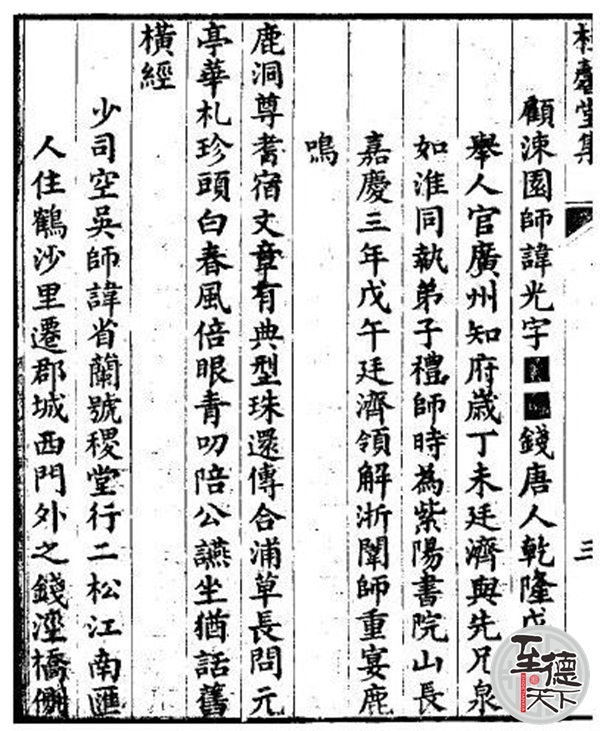 桂馨堂集
三
顧涑園師諱光字■■錢唐人乾隆戊
舉人官廣州知府歲丁未廷濟與先兄泉
如淮同執弟子禮師時為紫陽書院山長
嘉慶三年戊午廷濟領解浙闈師重宴鹿
鳴
鹿洞尊耆宿文章有典型珠還傳合浦草長問元
亭華札珍頭白春風倍眼青叨陪公讌坐猶話舊
橫經
少司空吳師諱省蘭號稷堂行二松江南匯
人住鶴沙里遷郡城西門外之錢涇橋側
至德天下